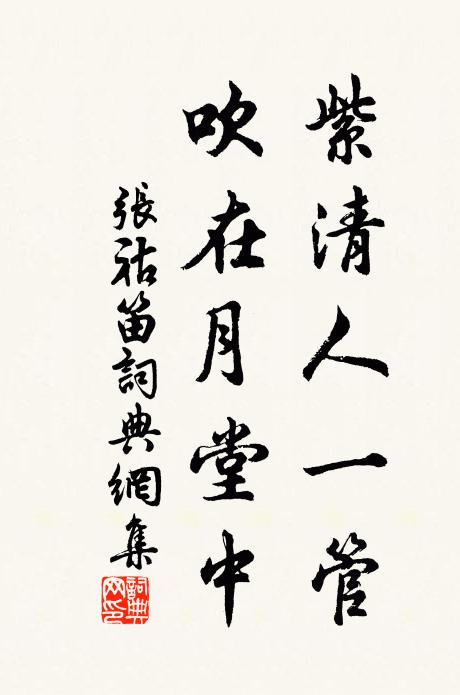 紫清人一管
吹在月堂中
張祜笛詞典網集
詞典网印